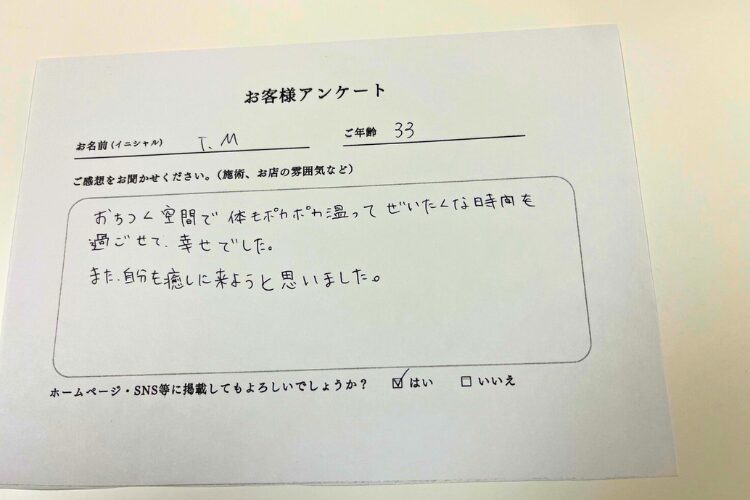 お客様アンケート
お名前(イニシャル) T.M ご年齢 33
ご感想をお聞かせください。(施術、お店の雰囲気など)
おちつく空間で体もポカポカ温ってぜいたくな時間を
過ごせて、幸せでした。
また、自分も癒しに来ようと思いました。
ホームページ・SNS等に掲載してもよろしいでしょうか? ☑はい □いいえ